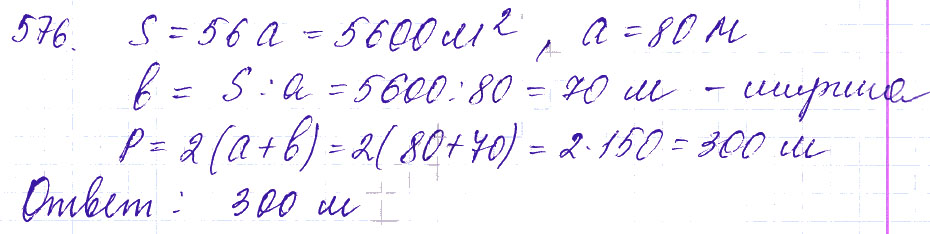 576. S = 56 а = 5600 м², a = 80 м
b = S : a = 5600 : 80 = 70 м - ширина
P = 2(a+b) = 2(80+70) = 2·150 = 300 м
Ответ: 300 м